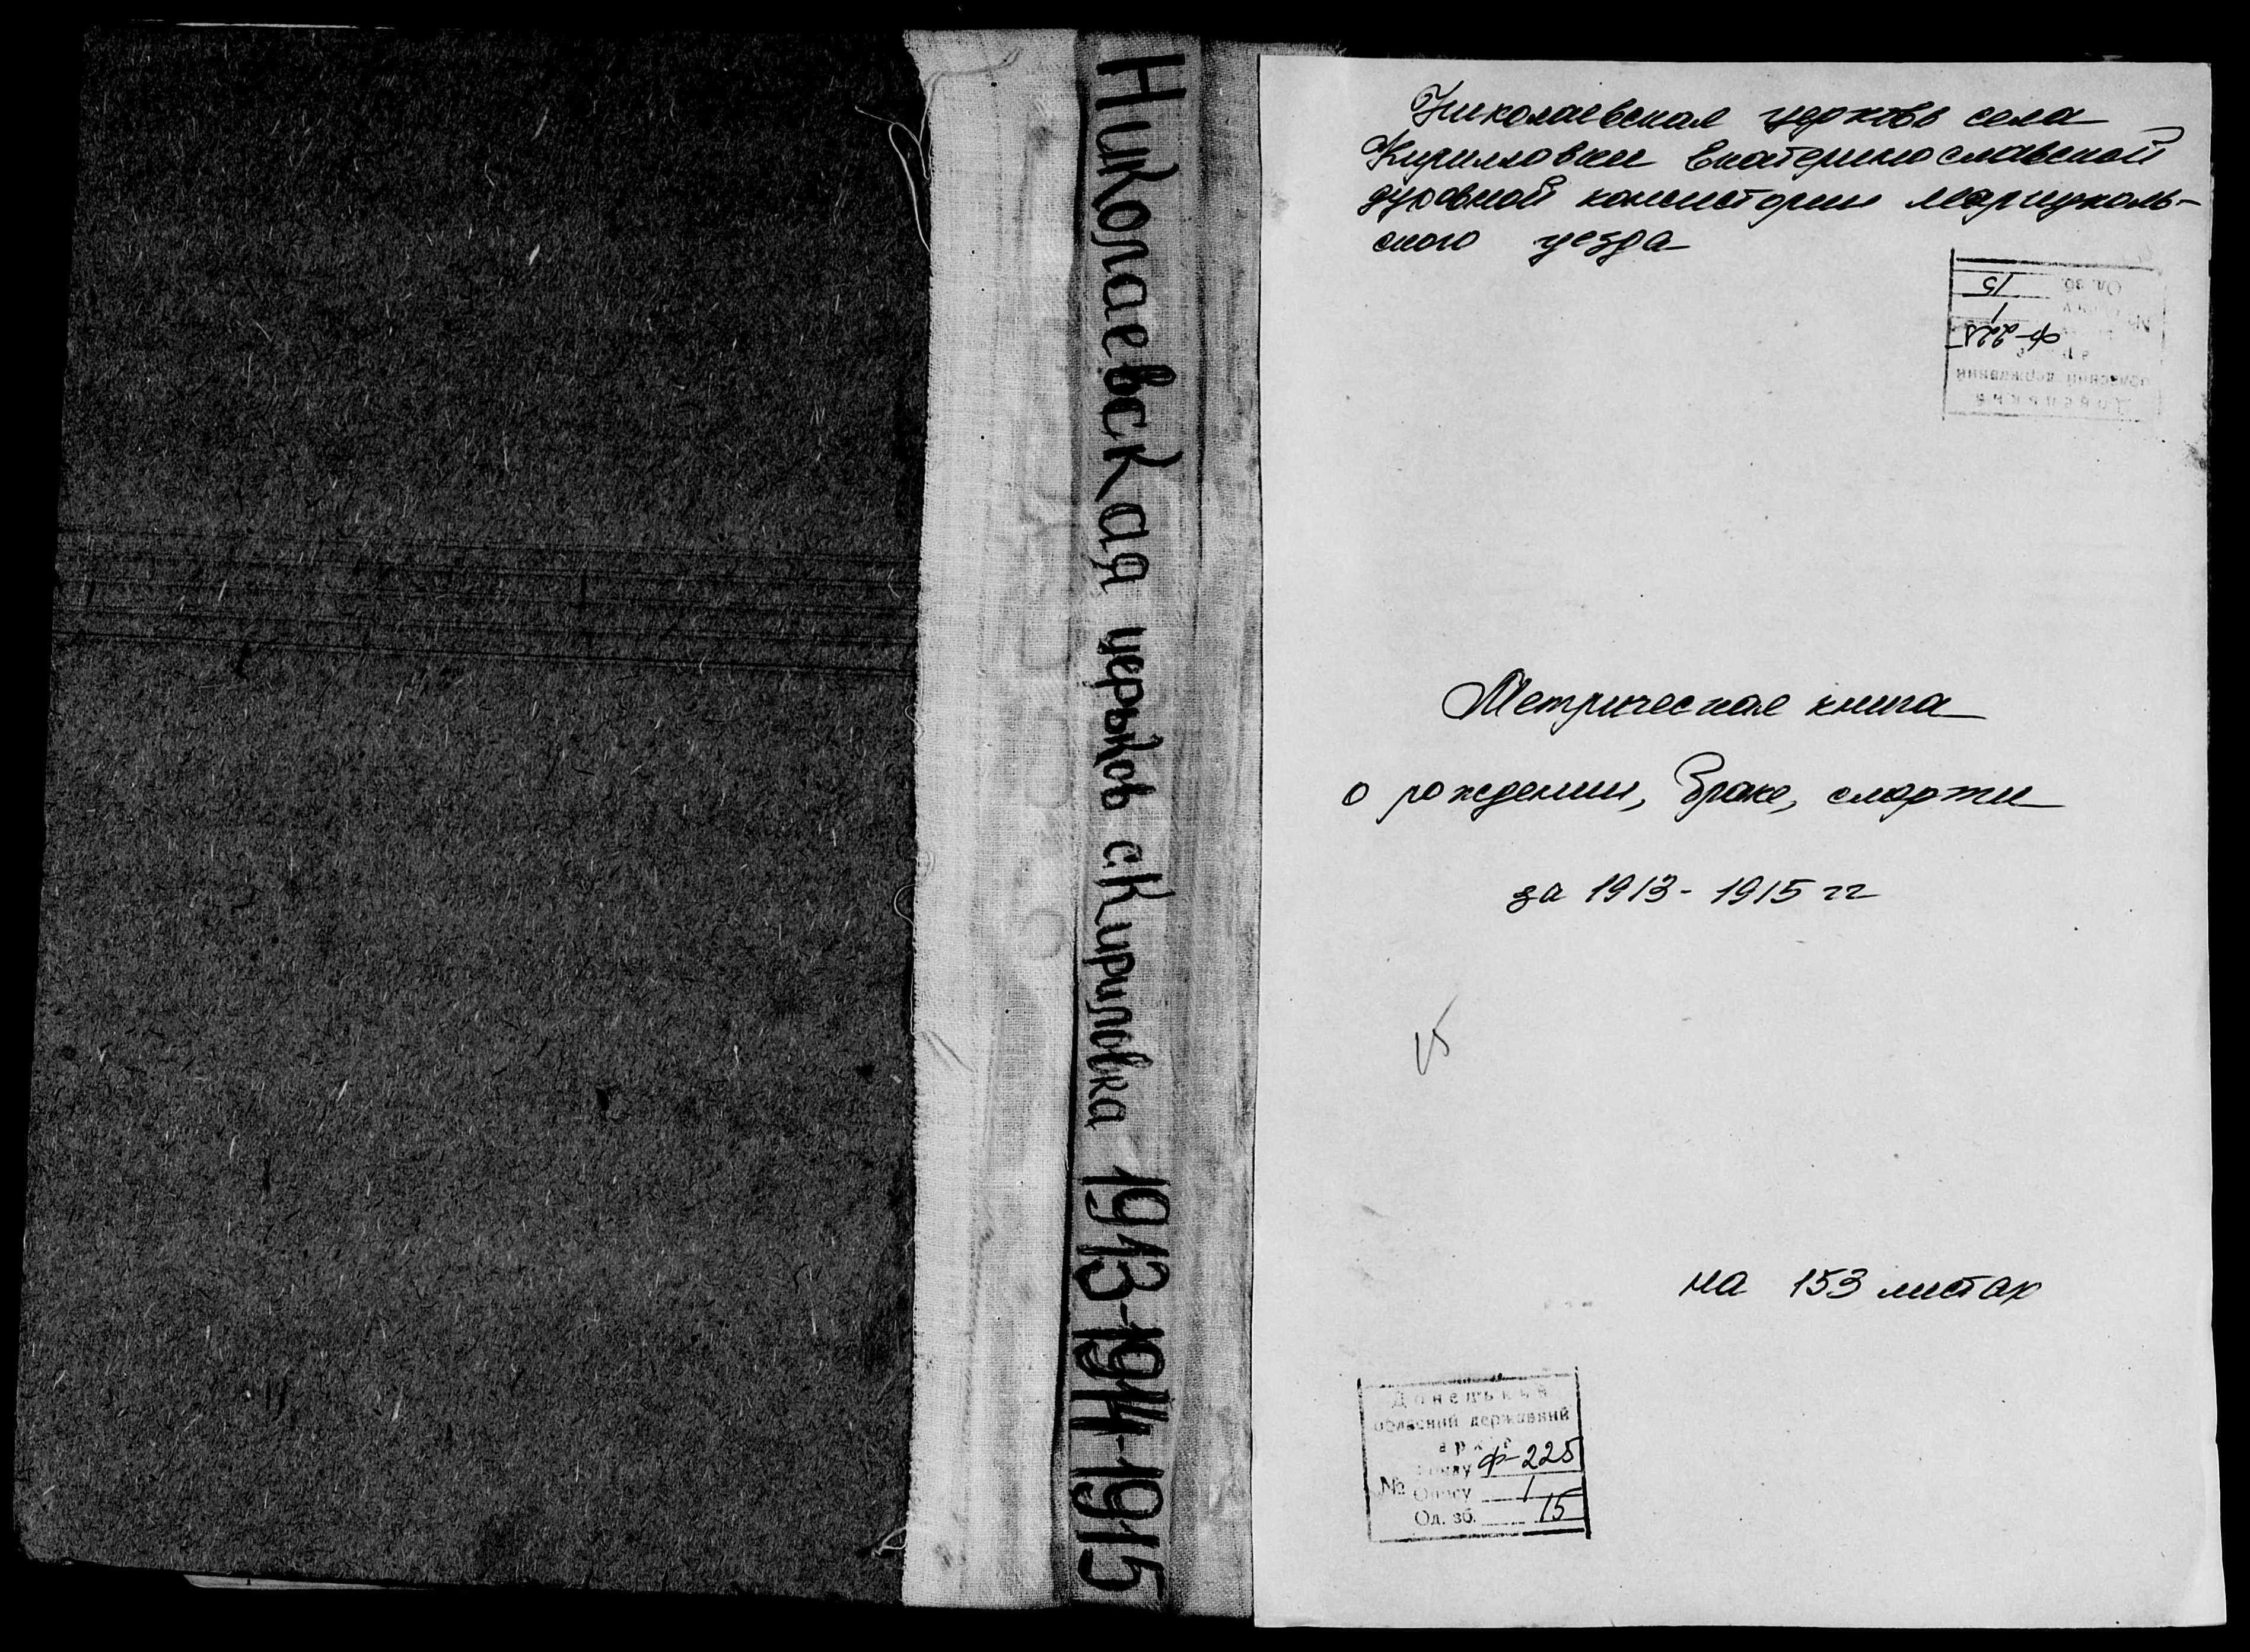 Николаевская церьков с. Кириловка 1913-1914-1915
Николаевская церковь села
Кирилловки Екатеринославской
духовной консистории Мариуполь-
ского уезда
Ф-225
1
15
Метрическая книга
о рождении, браке, смерти
за 1913 - 1915 гг
15
на 153 листах
Донецький
обласний державний
архів
Ф-225
№ Опису 1
Од. зб. 15